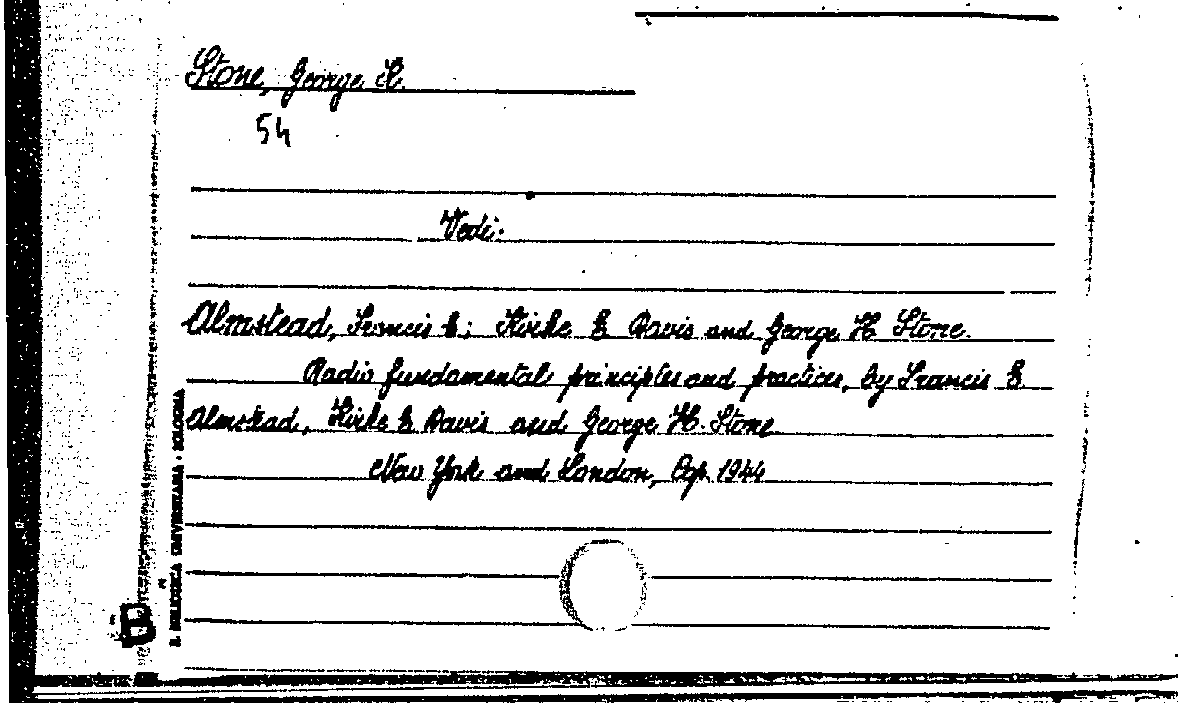 Stone, George H.
54
Vedi:
Almstead, Francis E.; Kirke E Davis and George H Stone.
Radio fundamental principles and practices, by Francis E.
Almstead, Kirke E Davis and George H. Stone
New York and London, Cop. 1944
R. BIBLIOTECA UNIVERSITARIA - BOLOGNA